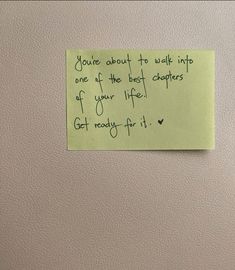 You're about to walk into
one of the best chapters
of your life.
Get ready for it. ♥